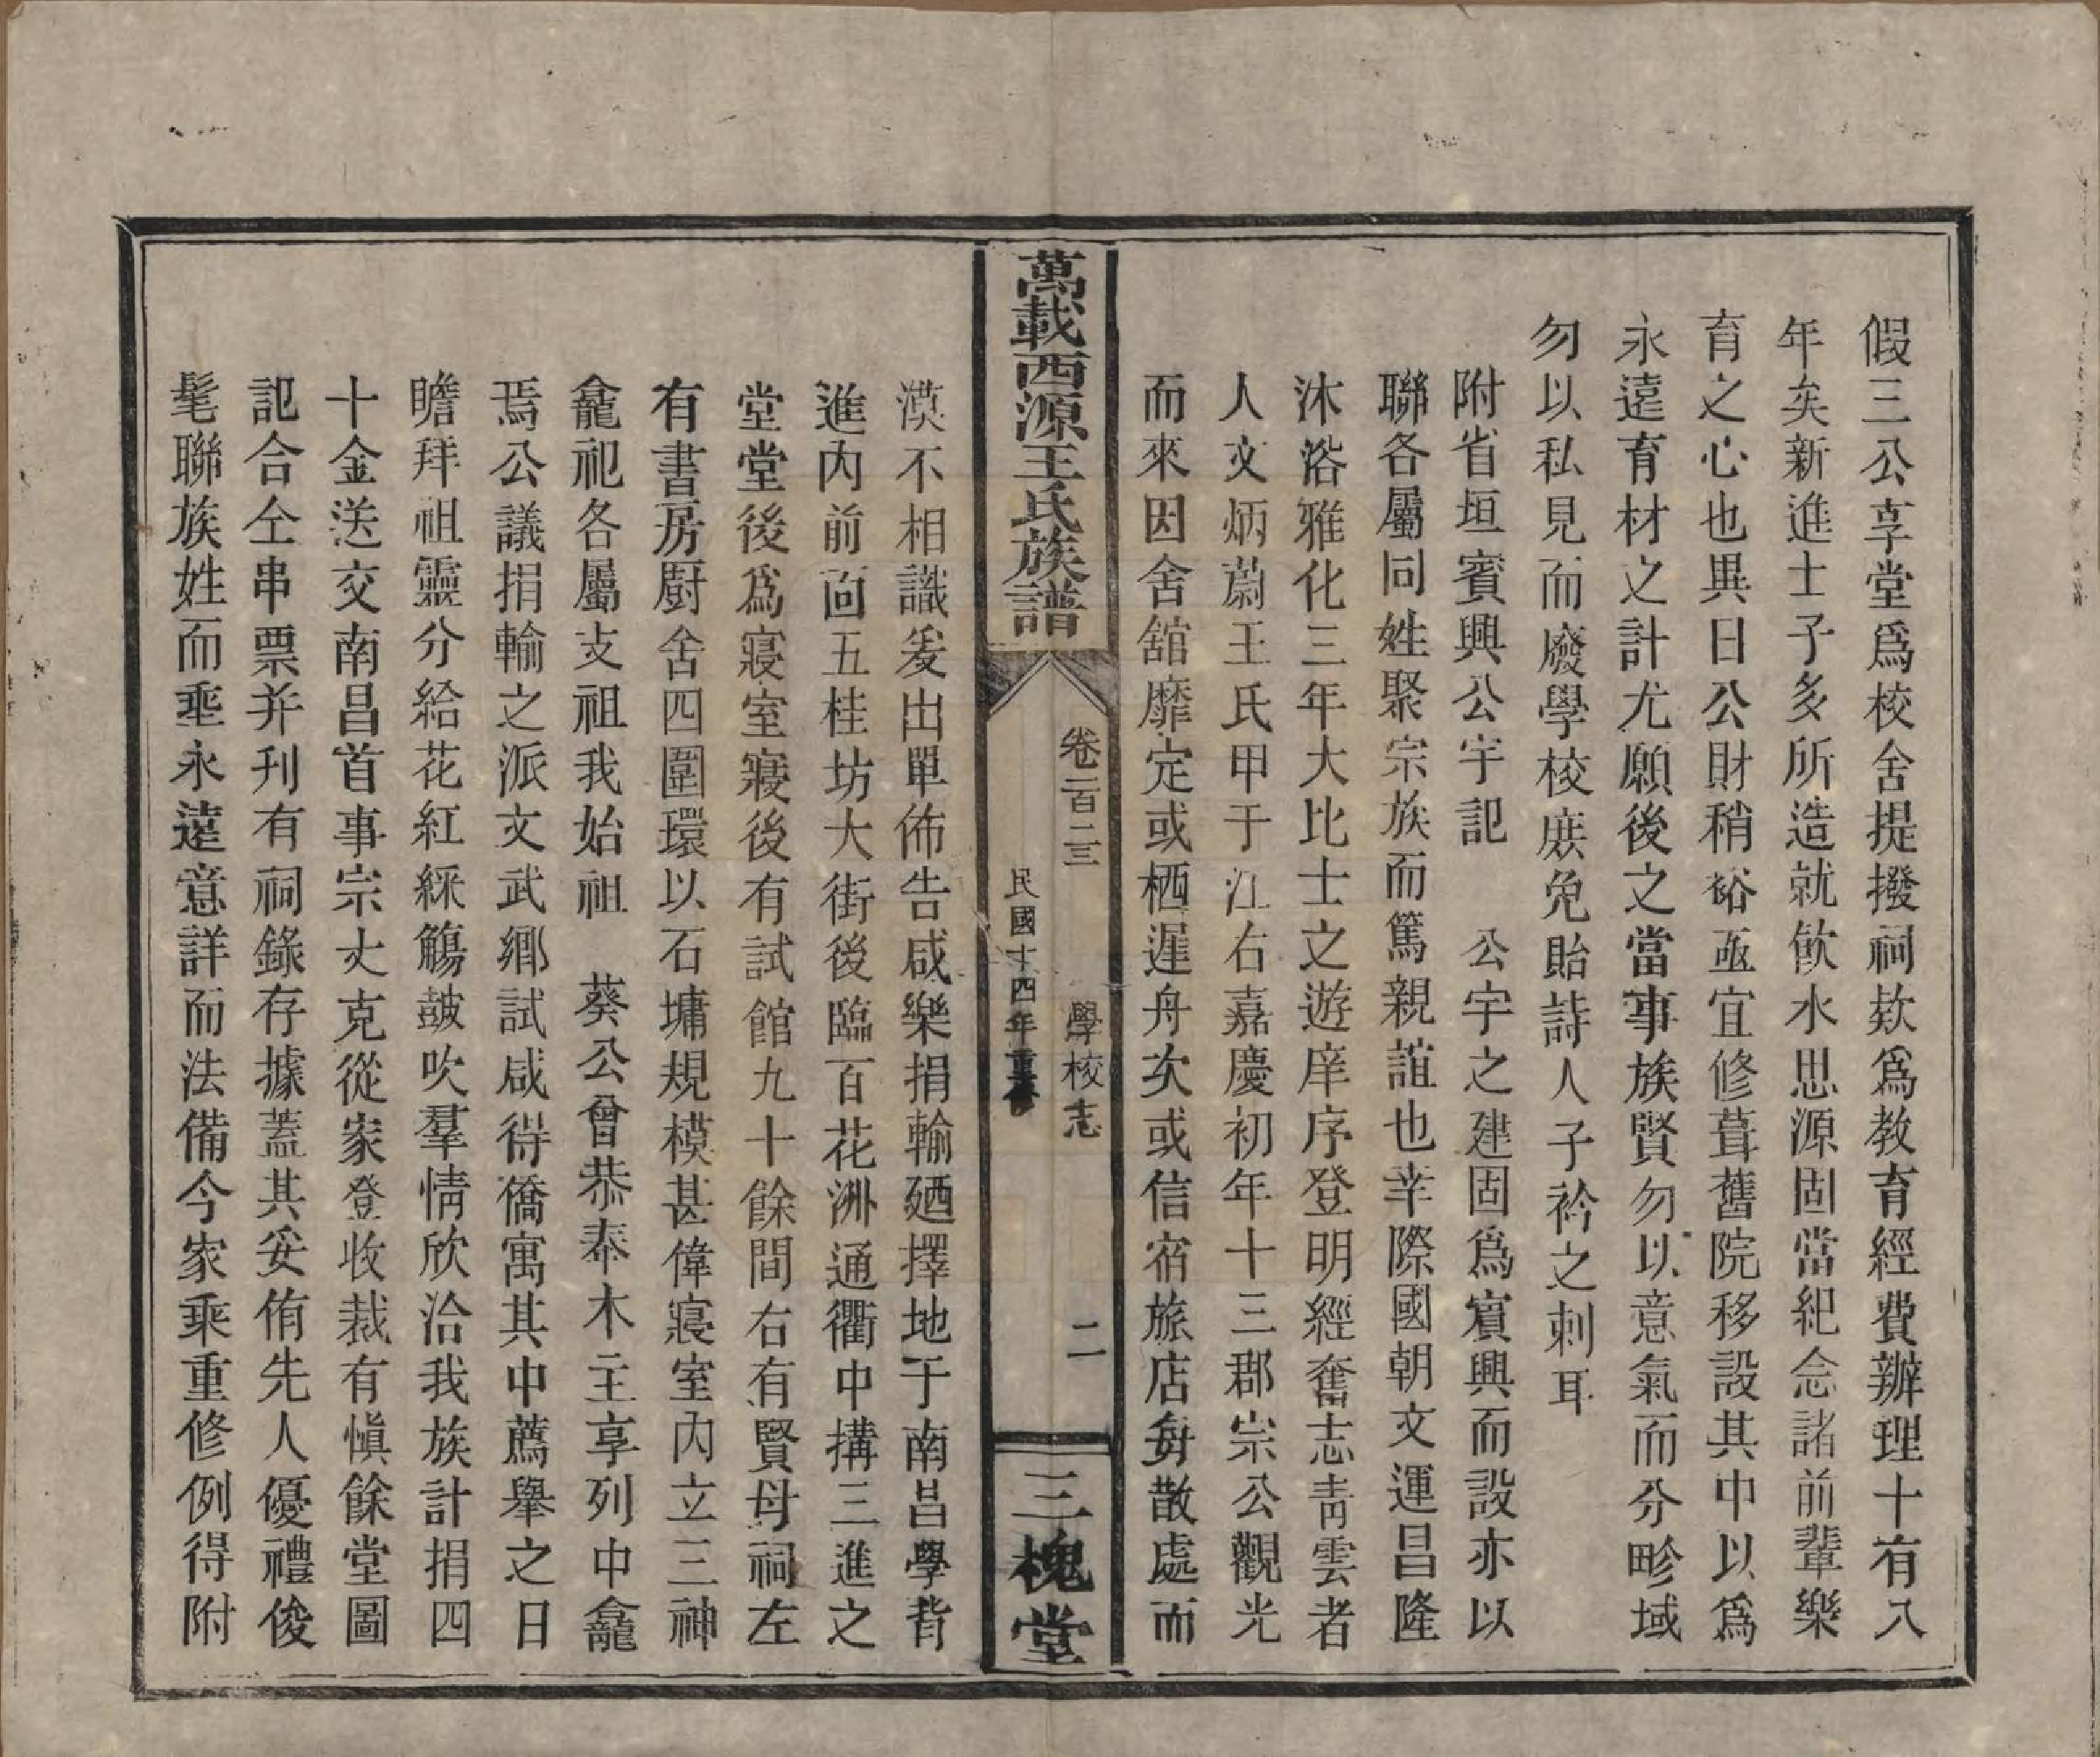 假三公享堂爲校舍提撥祠欵爲教育經費辦理十有八
年矣新進士子多所造就飲水思源固當紀念諸前輩樂
育之心也異日公財稍裕亟宜修葺舊院移設其中以爲
永遠育材之計尤願後之當事族賢勿以意氣而分畛域
勿以私見而廢學校庶免貽詩人子衿之刺耳
附省垣賓興公宇記　公宇之建固爲賓興而設亦以
聯各屬同姓聚宗族而篤親誼也幸際國朝文運昌隆
沐浴雅化三年大比士之遊庠序登明經奮志靑雲者
人文炳蔚王氏甲于江右嘉慶初年十三郡宗公觀光
而來因舍舘靡定或栖遲舟次或信宿旅店每散處而
萬載西源王氏族譜
卷二百二三
學校志
二
民國十四年重修
三槐堂
漠不相識爰出單佈告咸樂捐輸廼擇地于南昌學背
進內前面五桂坊大街後臨百花洲通衢中搆三進之
堂堂後爲寢室寢後有試館九十餘間右有賢母祠左
有書房廚舍四圍環以石墉規模甚偉寢室內立三神
龕祀各屬支祖我始祖　葵公曾恭奉木主享列中龕
焉公議捐輸之派文武鄉試咸得僑寓其中薦舉之日
瞻拜祖靈分給花紅綵觴鼓吹羣情欣洽我族計捐四
十金送交南昌首事宗丈克從家登收裁有愼餘堂圖
記合仝串票并刊有祠錄存據蓋其妥侑先人優禮俊
髦聯族姓而垂永遠意詳而法備今家乘重修例得附